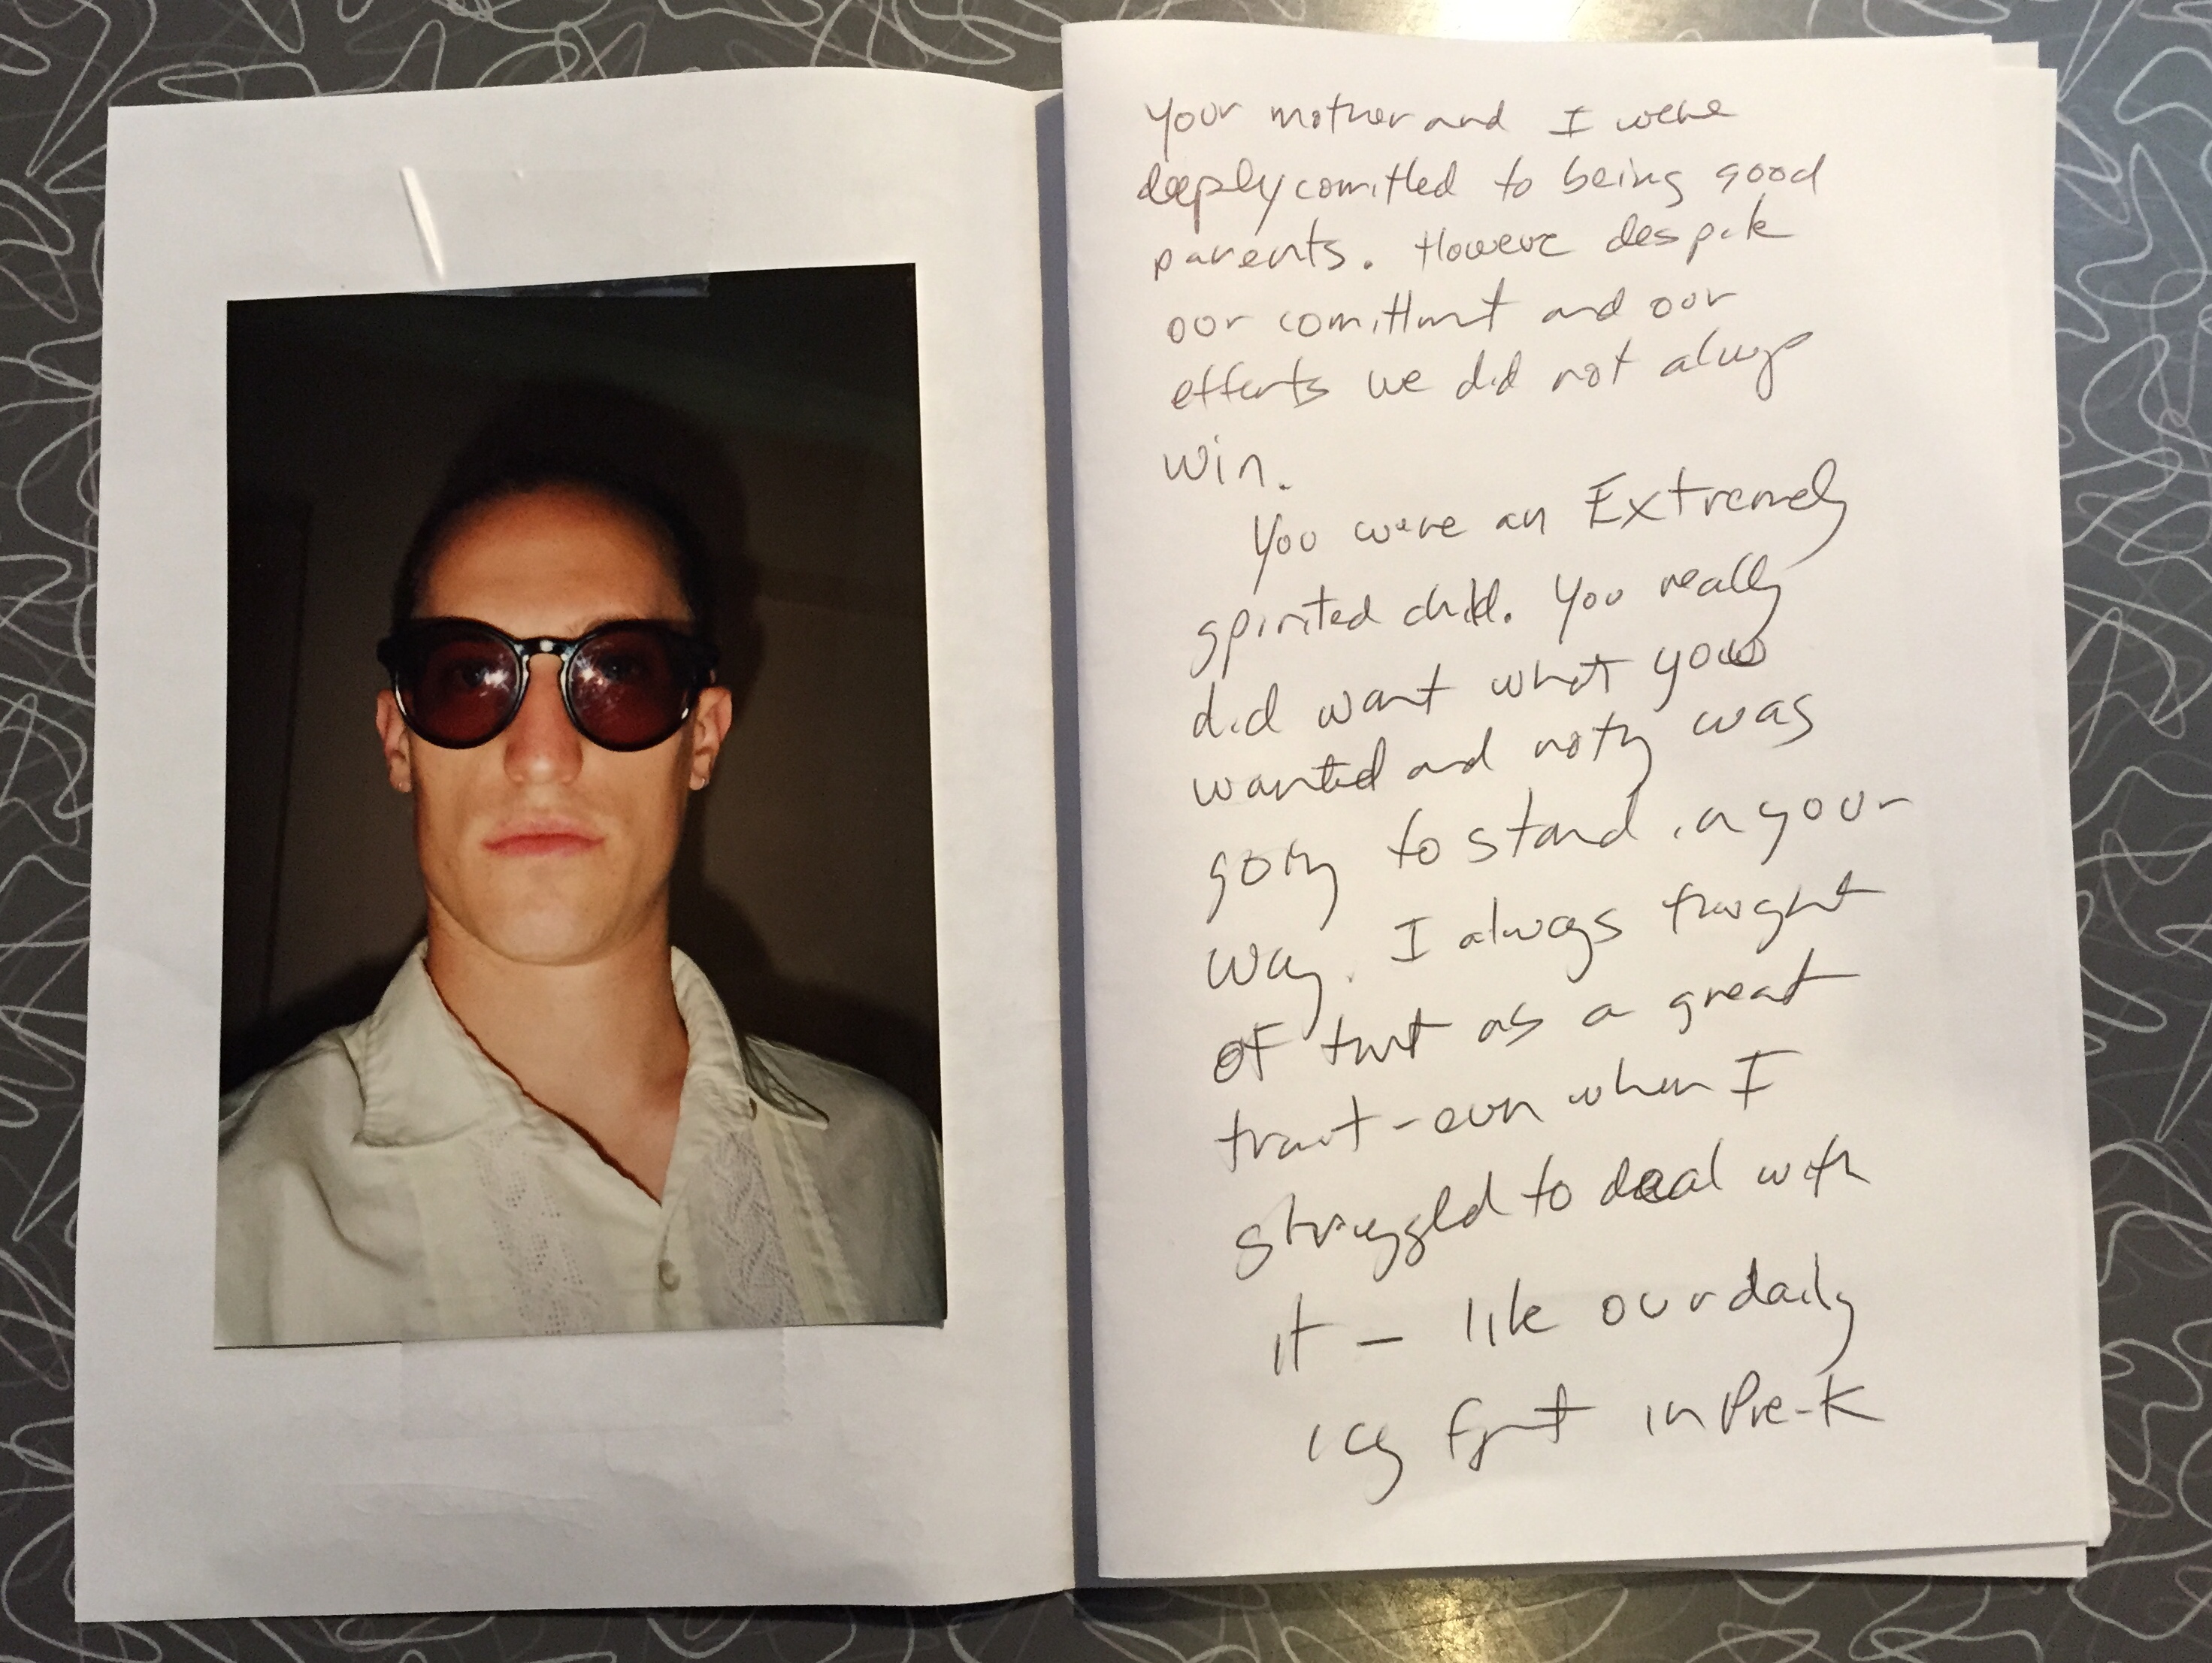 Your mother and I were
deeply comitted to being good
parents. Howeve despite
our comittmt and our
efforts we did not always
win.
You were an Extremely
spirited child. You really
did want what you
wanted and nothg was
going to stand in your
way. I always thought
of that as a great
trait - even when I
struggled to deal with
it - like our daily
icy fight in Pre-K